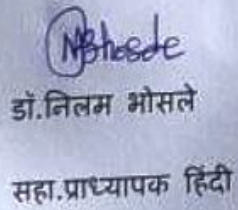 NBhosale
डॉ.निलम भोसले
सहा.प्राध्यापक हिंदी